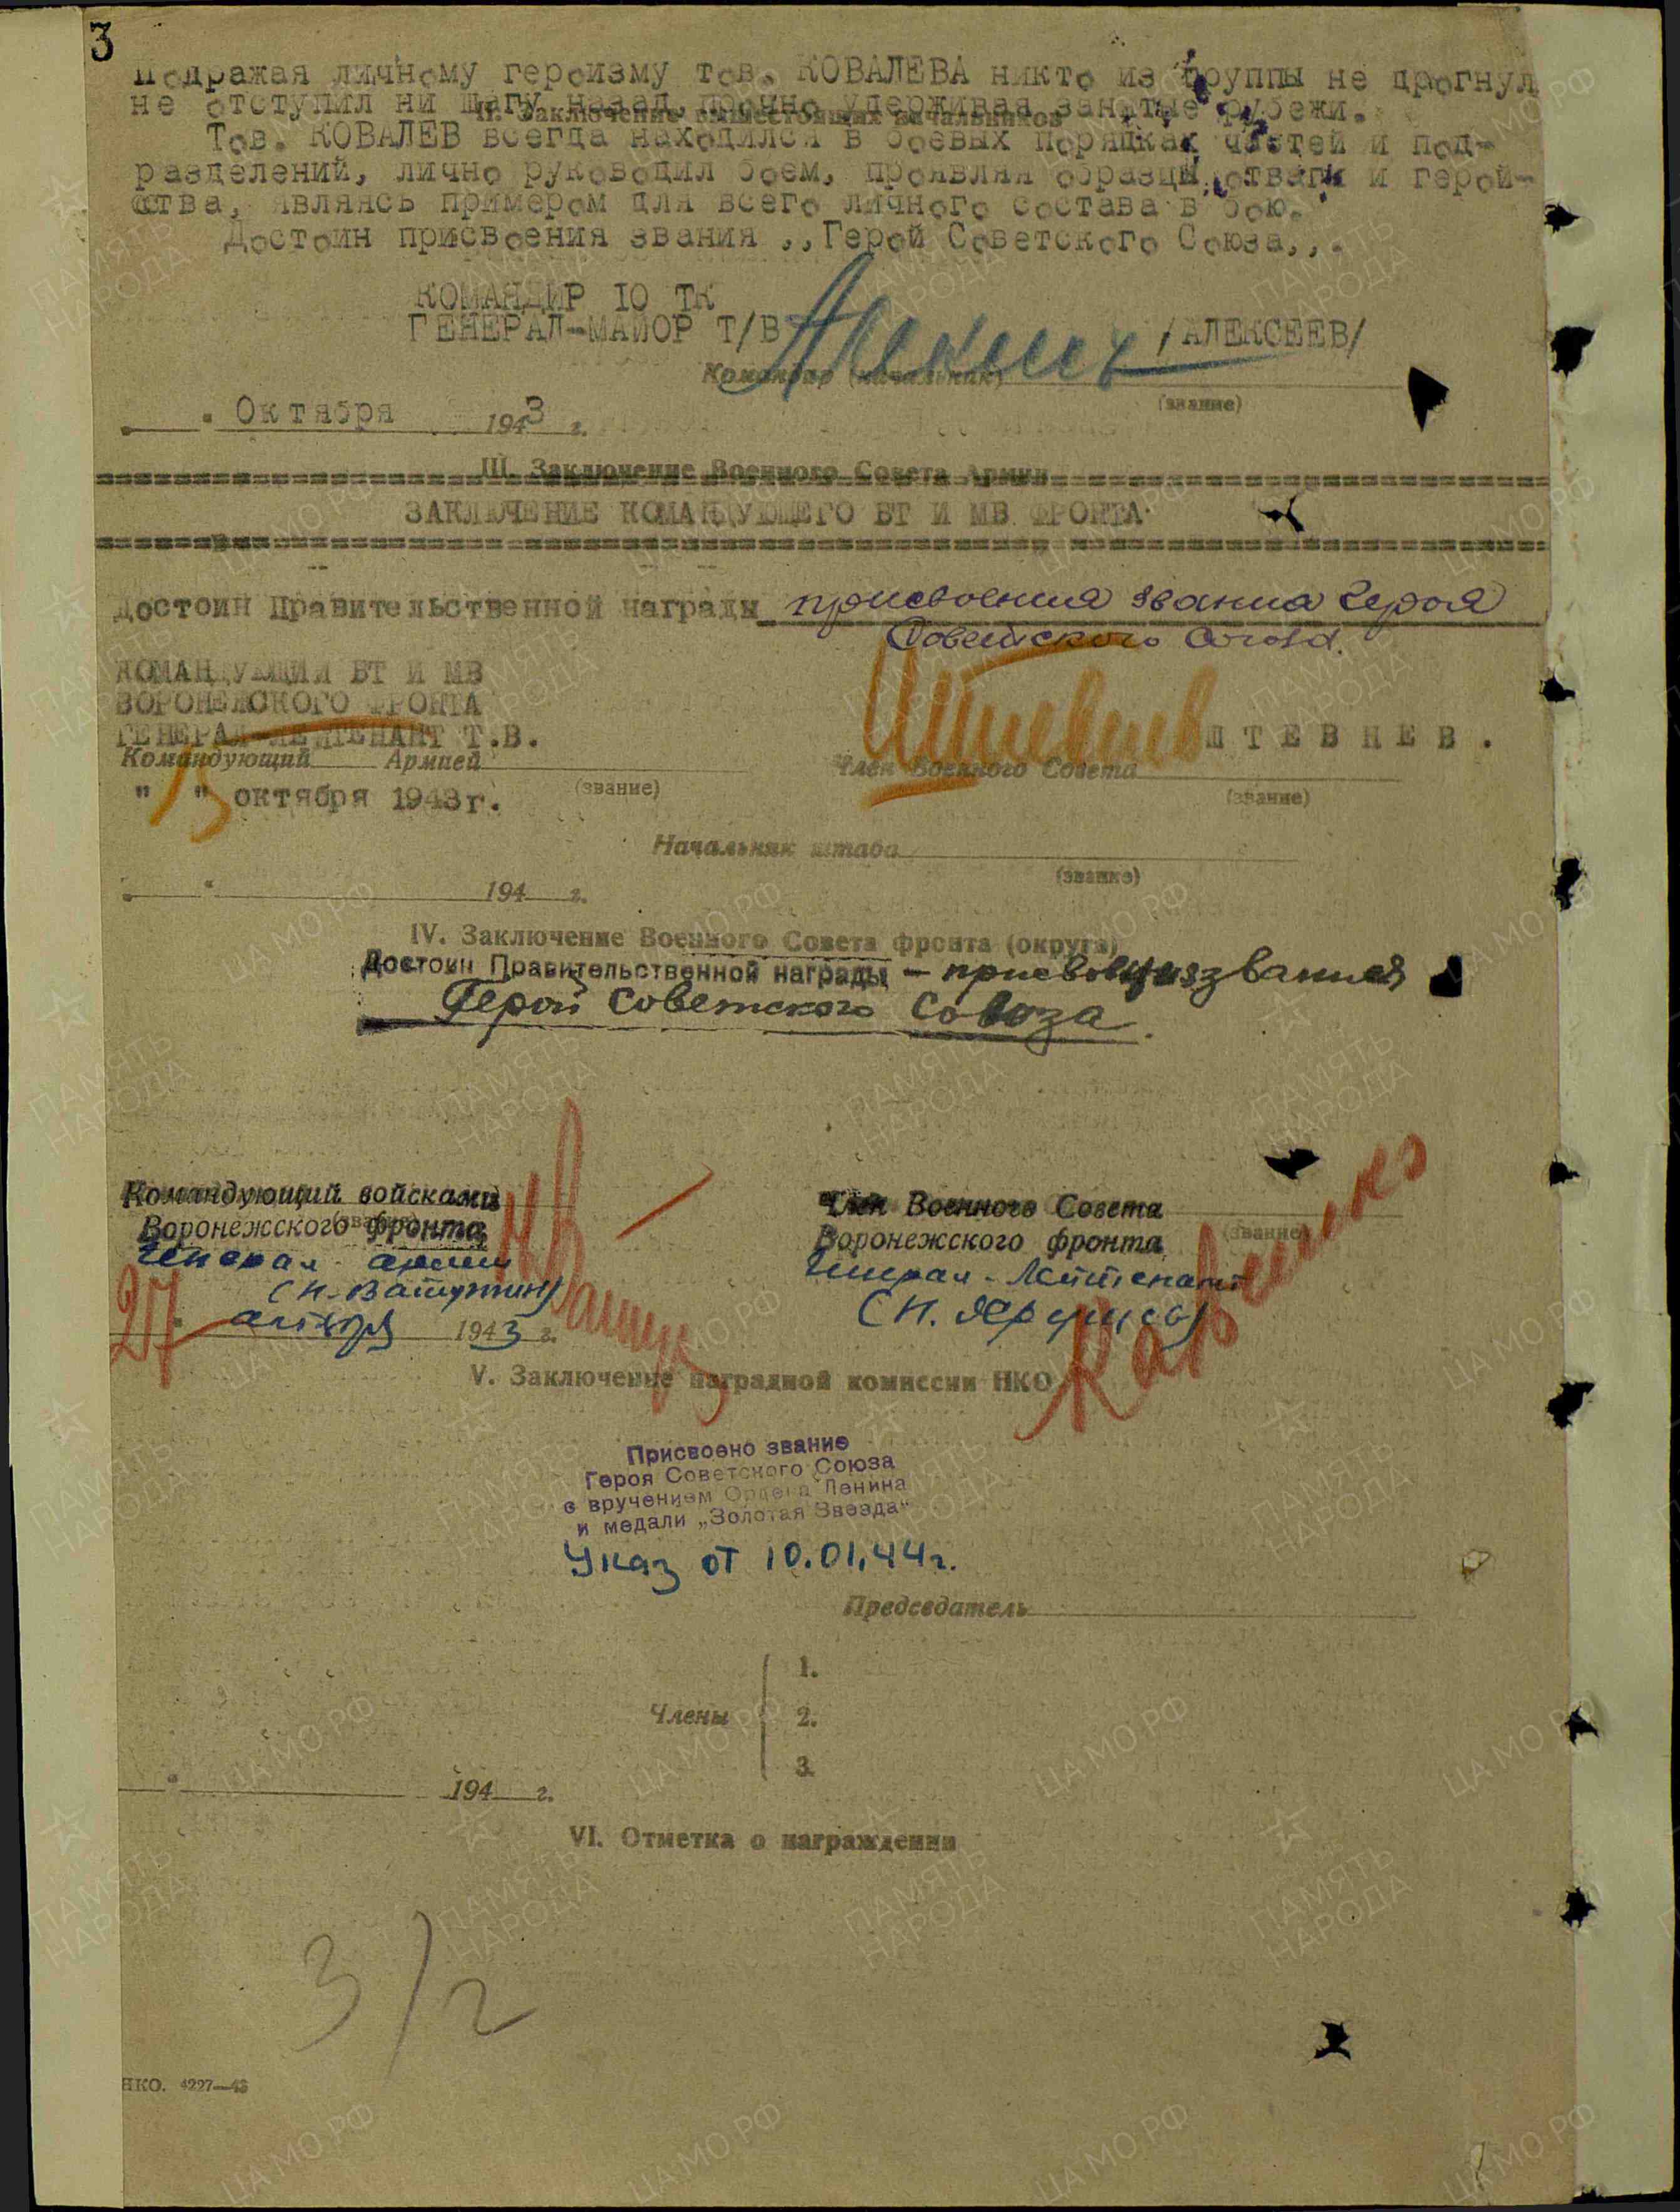 3
Подражая личному героизму тов. КОВАЛЕВА никто из группы не дрогнул
не отступил ни шагу назад, прочно удерживая занятые рубежи.
II. Заключение вышестоящих начальников
Тов. КОВАЛЕВ всегда находился в боевых порядках частей и под-
разделений, лично руководил боем, проявляя образцы отваги и герой-
ства, являясь примером для всего личного состава в бою.
Достоин присвоения звания ,,Герой Советского Союза,,.
КОМАНДИР 10 ТК
ГЕНЕРАЛ-МАЙОР Т/В /АЛЕКСЕЕВ/
Командир (начальник)
(звание)
Октября 1943 г.
III. Заключение Военного Совета Армии
ЗАКЛЮЧЕНИЕ КОМАНДУЮЩЕГО БТ И МВ ФРОНТА
Достоин Правительственной награды присвоения звания Героя
Советского Союза.
КОМАНДУЮЩИЙ БТ И МВ
ВОРОНЕЖСКОГО ФРОНТА
ГЕНЕРАЛ-ЛЕЙТЕНАНТ Т.В. ШТЕВНЕВ.
Командующий Армией
Член Военного Совета
(звание) (звание)
" " октября 1943г.
Начальник штаба
(звание)
194 г.
IV. Заключение Военного Совета фронта (округа)
Достоин Правительственной награды - присвоения звания
Герой Советского Союза.
Командующий войсками
Воронежского фронта
(звание)
Генерал армии
(Н. Ватутин)
27 октября 1943 г.
Член Военного Совета
Воронежского фронта
(звание)
Генерал-Лейтенант
V. Заключение наградной комиссии НКО
Присвоено звание
Героя Советского Союза
с вручением Ордена Ленина
и медали „Золотая Звезда"
Указ от 10.01.44г.
Председатель
Члены
1.
2.
3.
194 г.
VI. Отметка о награждении
3/2
НКО. 4227—43
ПАМЯТЬ НАРОДА
ЦА МО РФ